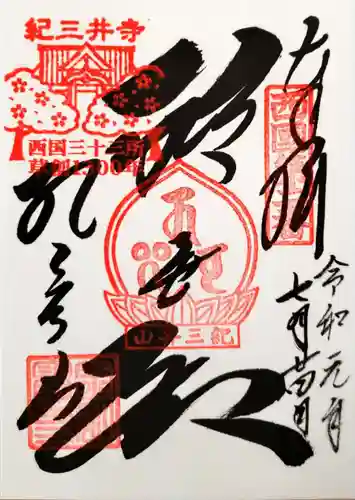 奉拝
西国第二番
令和元年
七月廿四日
救世殿
紀三井山
紀三井寺
紀三井寺
西国三十三所
草創1300年